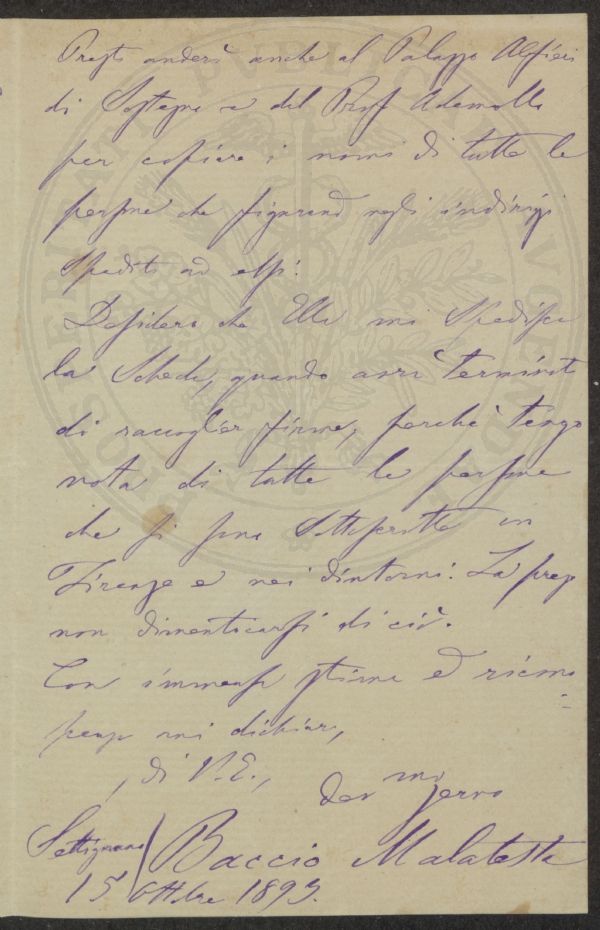 Presto anderò anche al Palazzo Alfieri
di Sostegno e del Prof Ademollo
per copiare i nomi di tutte le
persone che figurano negli indirizzi
spediti ad essi.
Desidero che Ella mi spedisca
la Scheda, quando avrà terminato
di raccoglier firme, perchè tengo
nota di tutte le persone
che si sono sottoscritte in
Firenze e nei dintorni. La prego
non dimenticarsi di ciò.
Con immensa stima e ricono
scenza mi dichiaro,
di V. E.,
dev mo servo
Settignano
15 Ottobre 1893.
Baccio Malatesta